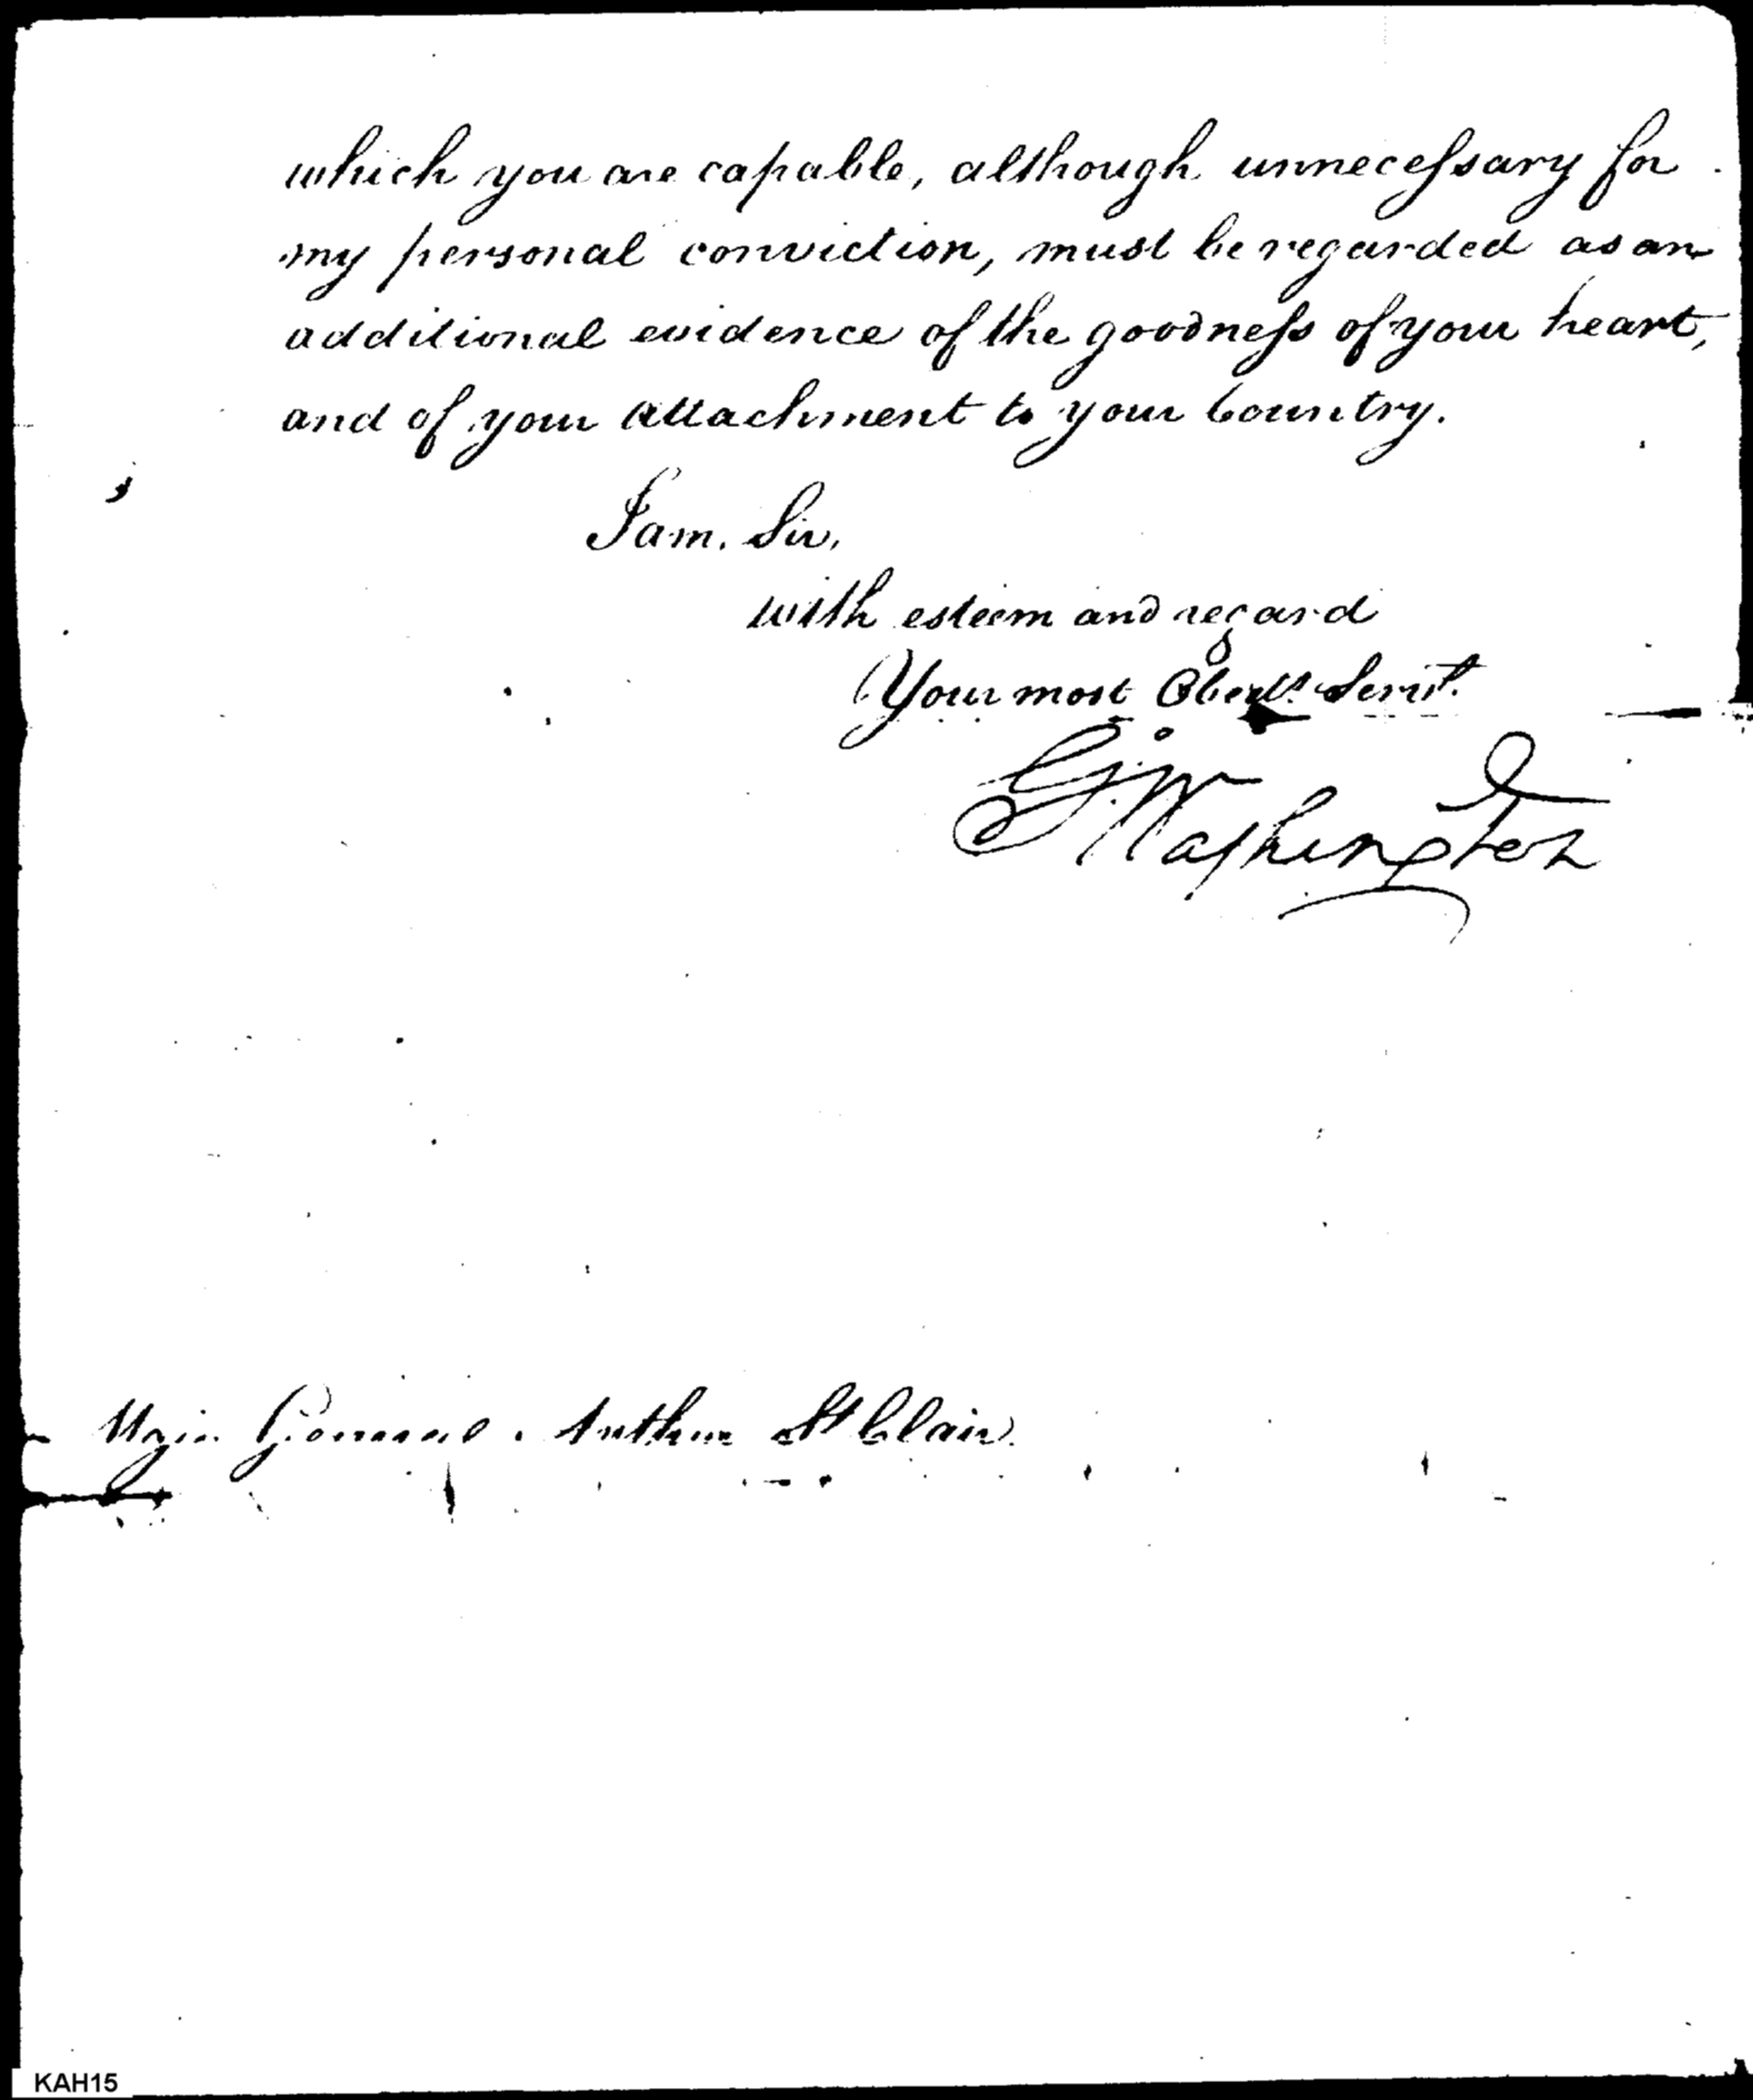 which you are capable, although unnecessary for
my personal conviction, must be regarded as an
additional evidence of the goodness of your heart,
and of your attachment to your Country.
I am, Sir,
with esteem and regard
Your most Obedt. Servt.
G:Washington
Major General Arthur St Clair.
KAH15